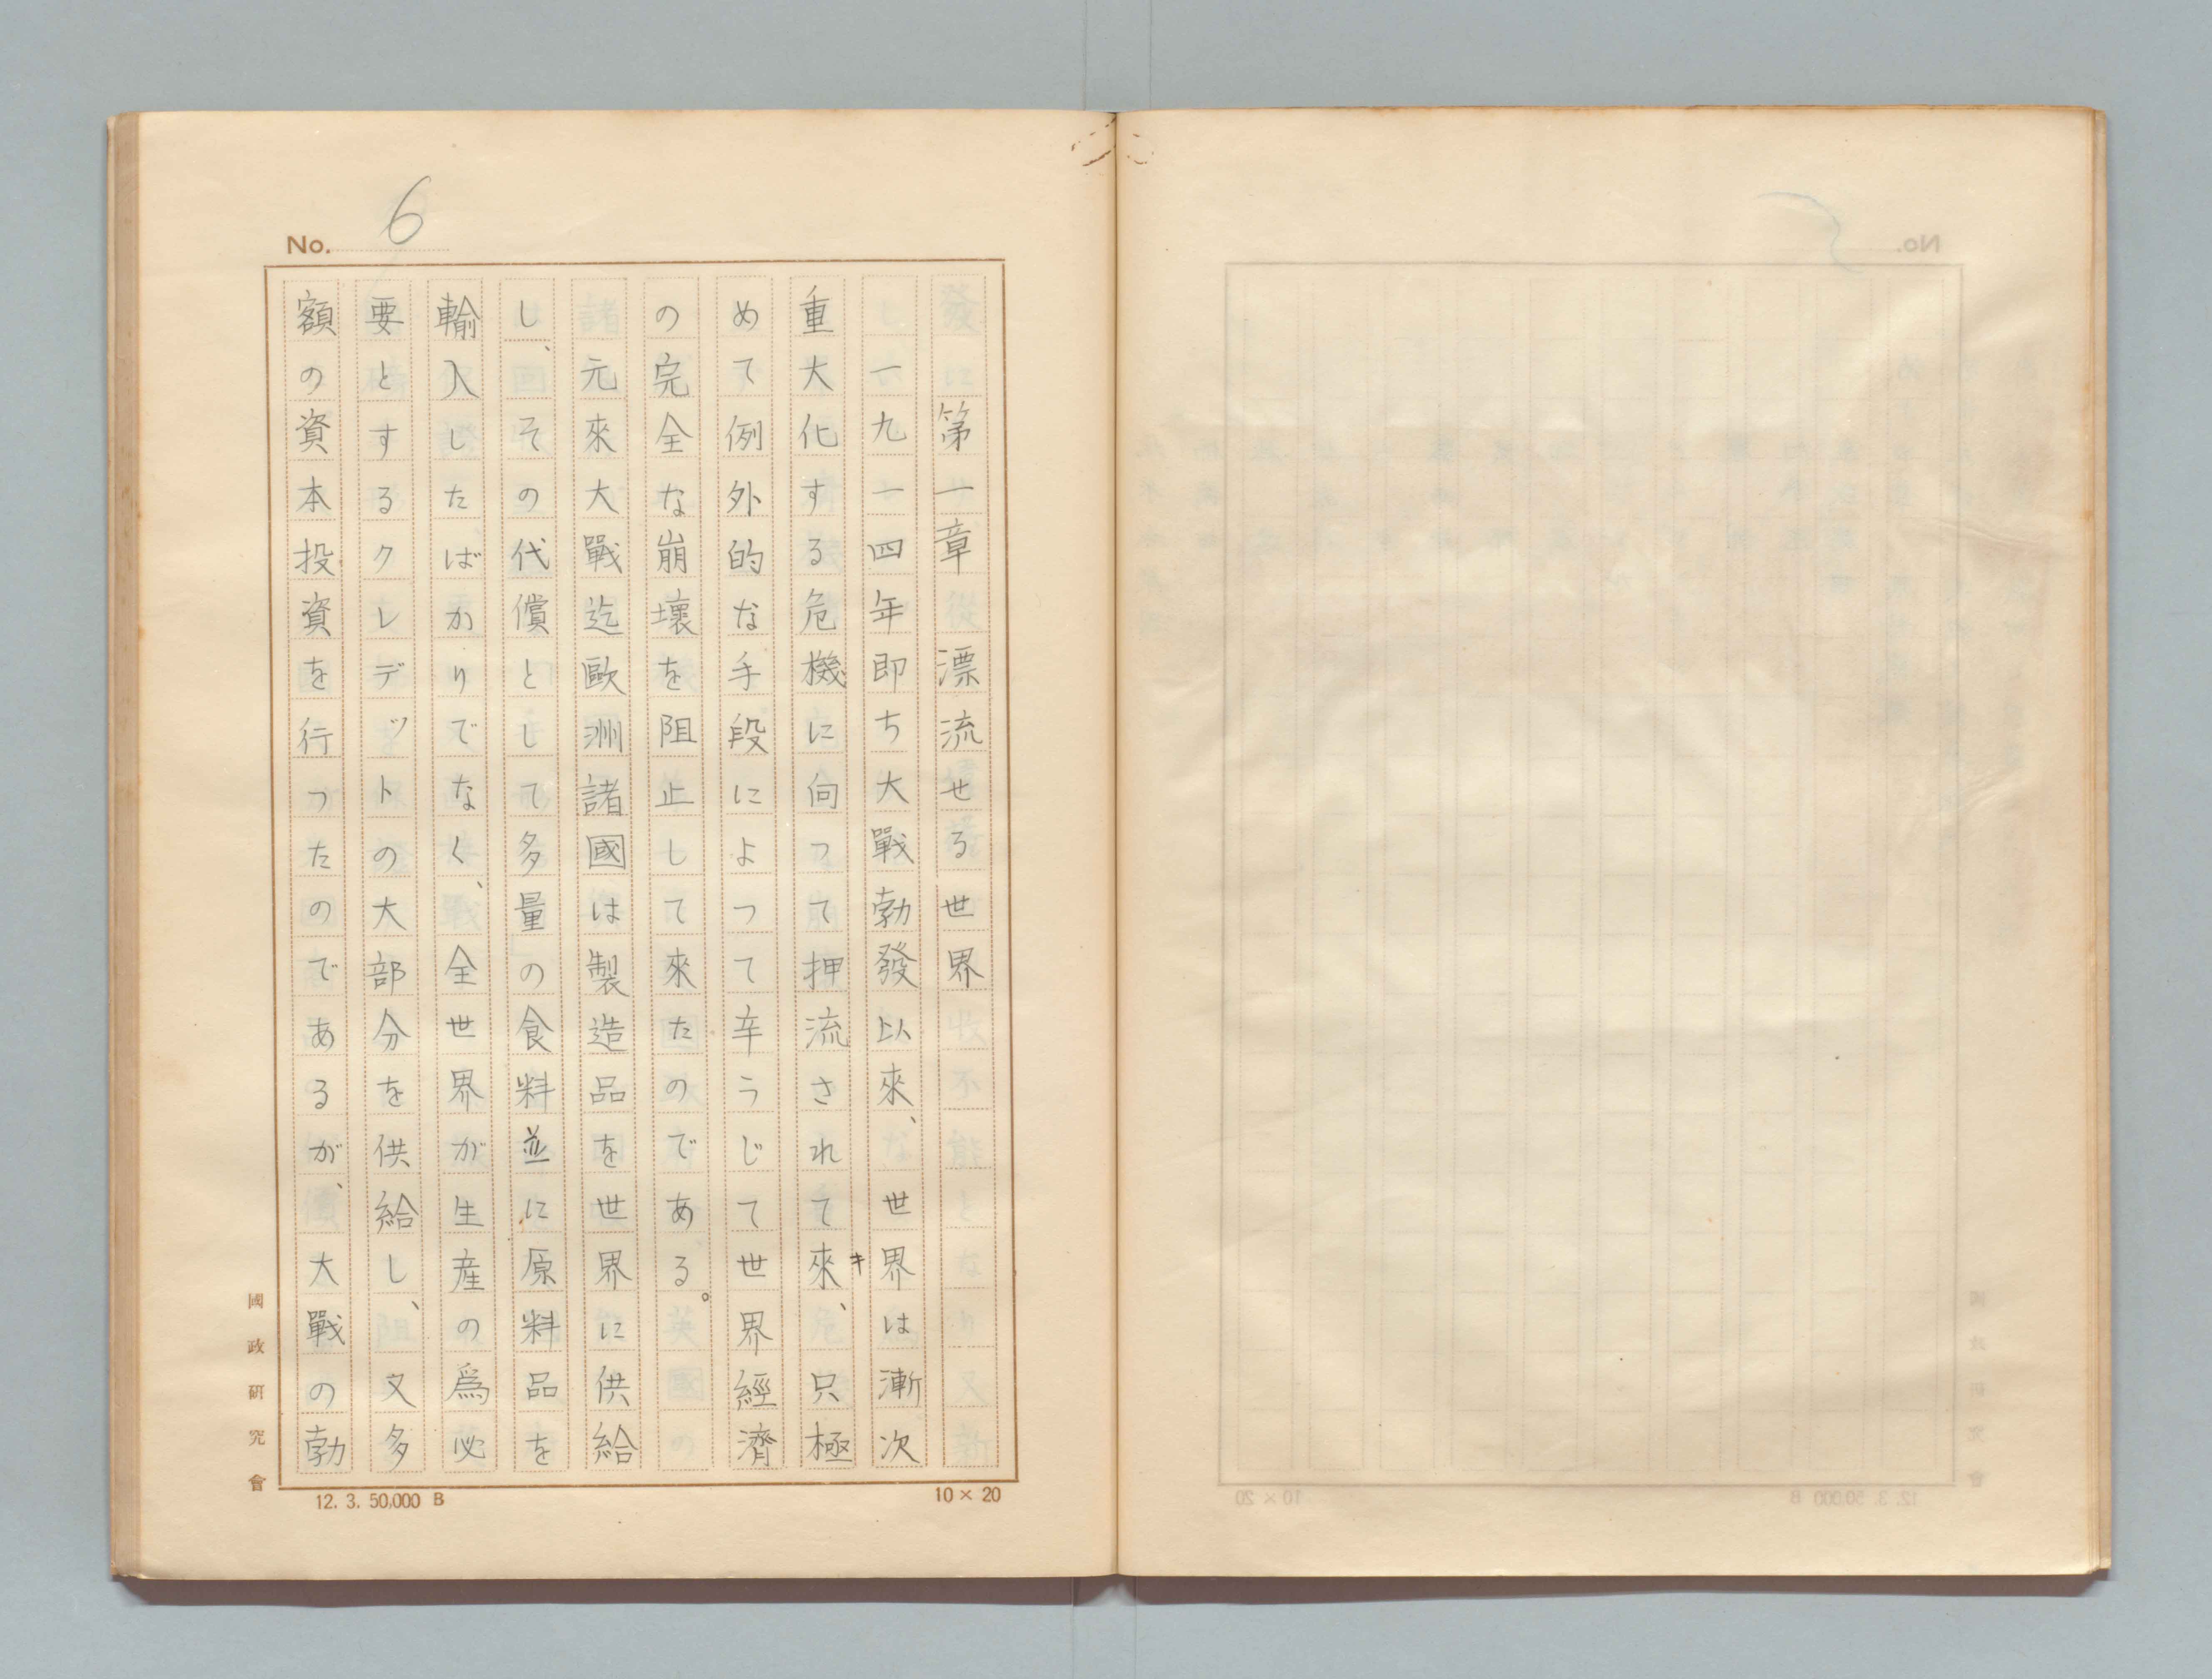 No. 6
第一章 漂流せる世界
一九一四年即ち大戰勃發以來、世界は漸次
重大化する危機に向って押流されて來、只極
キ
めて例外的な手段によって辛うじて世界經濟
の完全な崩壞を阻止して來たのである。
元來大戰迄歐洲諸國は製造品を世界に供給
し、その代償として多量の食料並に原料品を
輸入したばかりでなく、全世界が生産の爲必
要とするクレデットの大部分を供給し、又多
額の資本投資を行ったのであるが、大戰の勃
國政研究會
12. 3. 50,000 B
10 × 20